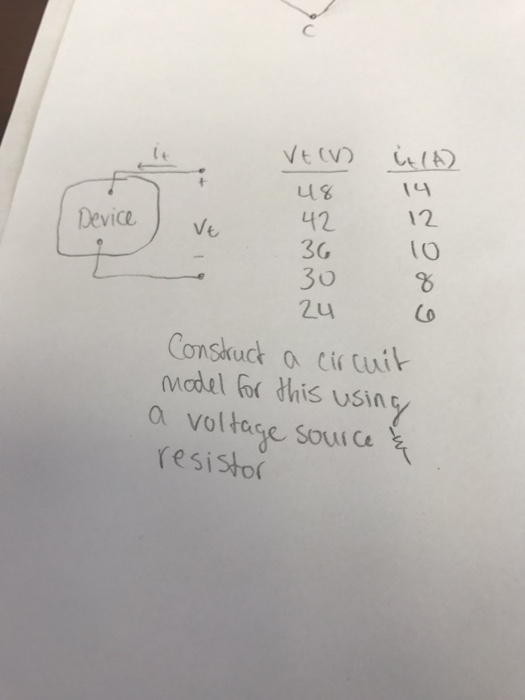 C
it
Vt (V) it (A)
+
48 14
Device
42 12
Vt
36 10
-
30 8
24 6
Construct a circuit
model for this using
a voltage source &
resistor